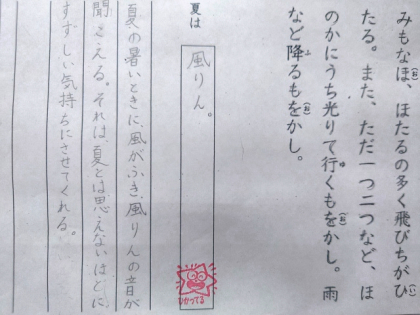 みもなほ(お)、ほたるの多く飛びちがひ(い)
たる。また、ただ一つ二つなど、ほ
のかにうち光りて行くもを(お)かし。雨
など降(ふ)るもを(お)かし。
夏は
風りん。
夏の暑いときに、風がふき、風りんの音が
聞こえる。それは、夏とは思えないほどに
すずしい気持ちにさせてくれる。
ひかってる